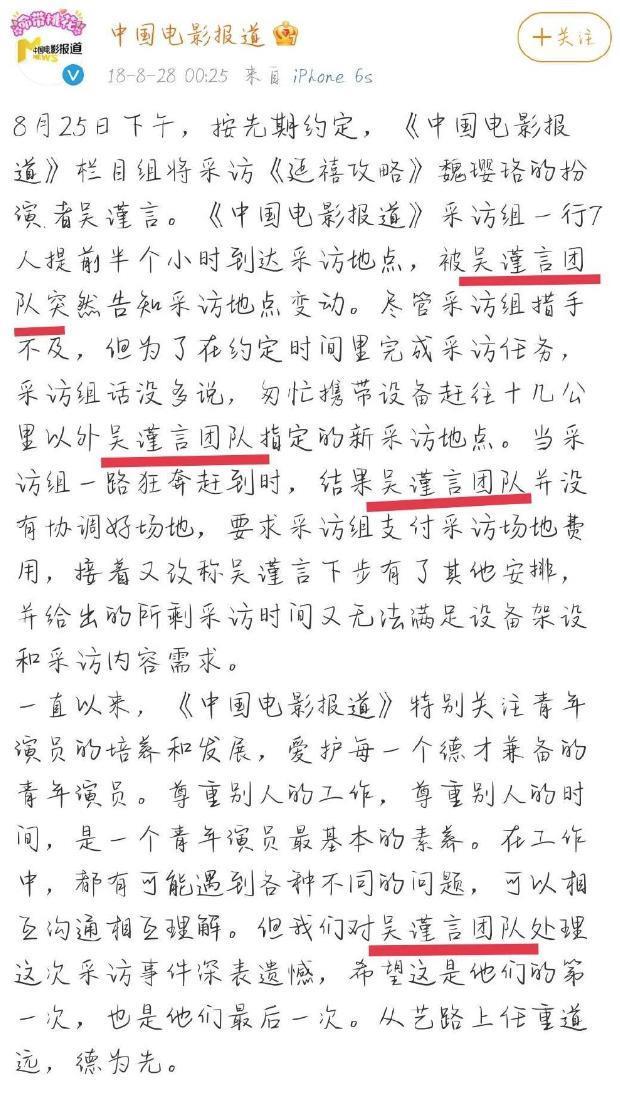 偷带桃花!!
中国电影报道
M中国电影报道
NEWS
+关注
18-8-28 00:25 来自 iPhone 6s
8月25日下午，按先期约定，《中国电影报
道》栏目组将采访《延禧攻略》魏璎珞的扮
演者吴谨言。《中国电影报道》采访组一行7
人提前半个小时到达采访地点，被吴谨言团
队突然告知采访地点变动。尽管采访组措手
不及，但为了在约定时间里完成采访任务，
采访组话没多说，匆忙携带设备赶往十几公
里以外吴谨言团队指定的新采访地点。当采
访组一路狂奔赶到时，结果吴谨言团队并没
有协调好场地，要求采访组支付采访场地费
用，接着又改称吴谨言下步有了其他安排，
并给出的所剩采访时间又无法满足设备架设
和采访内容需求。
一直以来，《中国电影报道》特别关注青年
演员的培养和发展，爱护每一个德才兼备的
青年演员。尊重别人的工作，尊重别人的时
间，是一个青年演员最基本的素养。在工作
中，都有可能遇到各种不同的问题，可以相
互沟通相互理解。但我们对吴谨言团队处理
这次采访事件深表遗憾，希望这是他们的第
一次，也是他们最后一次。从艺路上任重道
远，德为先。